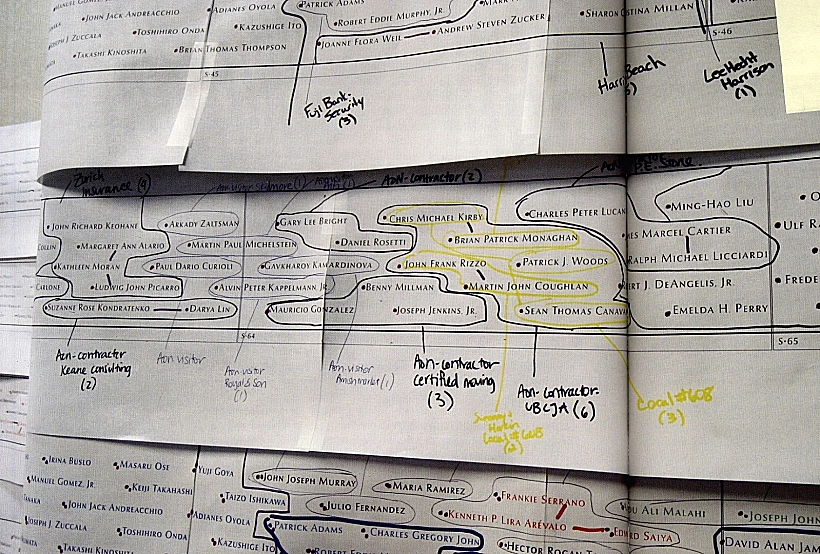 JOHN JACK ANDREACCHIO
ADIANES OYOLA
PATRICK ADAMS
ROBERT EDDIE MURPHY, JR.
MARK
SHARON
STINA MILLAN
JOSEPH J. ZUCCALA
TOSHIHIRO ONDA
KAZUSHIGE ITO
ANDREW STEVEN ZUCKER
TAKASHI KINOSHITA
BRIAN THOMAS THOMPSON
JOANNE FLORA WEIL
S-45
S-46
Fuji Bank-
Security
(3)
Harris Beach
Lee Hecht
Harrison
(1)
Zurich
Insurance (9)
Aon-contractor (2)
JOHN RICHARD KEOHANE
ARKADY ZALTSMAN
GARY LEE BRIGHT
CHRIS MICHAEL KIRBY
CHARLES PETER LUCAN
MING-HAO LIU
COLLIN
MARGARET ANN ALARIO
MARTIN PAUL MICHELSTEIN
DANIEL ROSETTI
BRIAN PATRICK MONAGHAN
MES MARCEL CARTIER
ULF RA
KATHLEEN MORAN
PAUL DARIO CURIOLI
GAVKHAROY KAMARDINOVA
JOHN FRANK RIZZO
PATRICK J. WOODS
RALPH MICHAEL LICCIARDI
CARLONE
LUDWIG JOHN PICARRO
ALVIN PETER KAPPELMANN JR.
BENNY MILLMAN
MARTIN JOHN COUGHLAN
J. DEANGELIS, JR.
FREDE
SUZANNE ROSE KONDRATENKO
DARYA LIN
MAURICIO GONZALEZ
JOSEPH JENKINS, JR.
SEAN THOMAS CANAVA
EMELDA H. PERRY
S-64
S-65
Aon-contractor
Keane consulting
(2)
Aon-visitor
Aon-visitor
Royal & Son
(1)
Aon-visitor
(1)
Aon-contractor
certified moving
(3)
Aon-contractor-
UBCJA (6)
Local #608
(2)
Local #608
(3)
IRINA BUSLO
MASARU OSE
YUJI GOYA
JOHN JOSEPH MURRAY
MARIA RAMIREZ
FRANKIE SERRANO
OU ALI MALAHI
JOSEPH JOHN
MANUEL GOMEZ, JR.
KEIJI TAKAHASHI
TAIZO ISHIKAWA
JULIO FERNANDEZ
KENNETH P. LIRA ARÉVALO
EDWARD SAIYA
TANAKA
JOHN JACK ANDREACCHIO
ADIANES OYOLA
PATRICK ADAMS
CHARLES GREGORY JOHN
DAVID ALAN JAM
JOSEPH J. ZUCCALA
TOSHIHIRO ONDA
KAZUSHIGE ITO
ROBERT EDDIE
HECTOR ROGAN
TAKASHI KINOSHITA